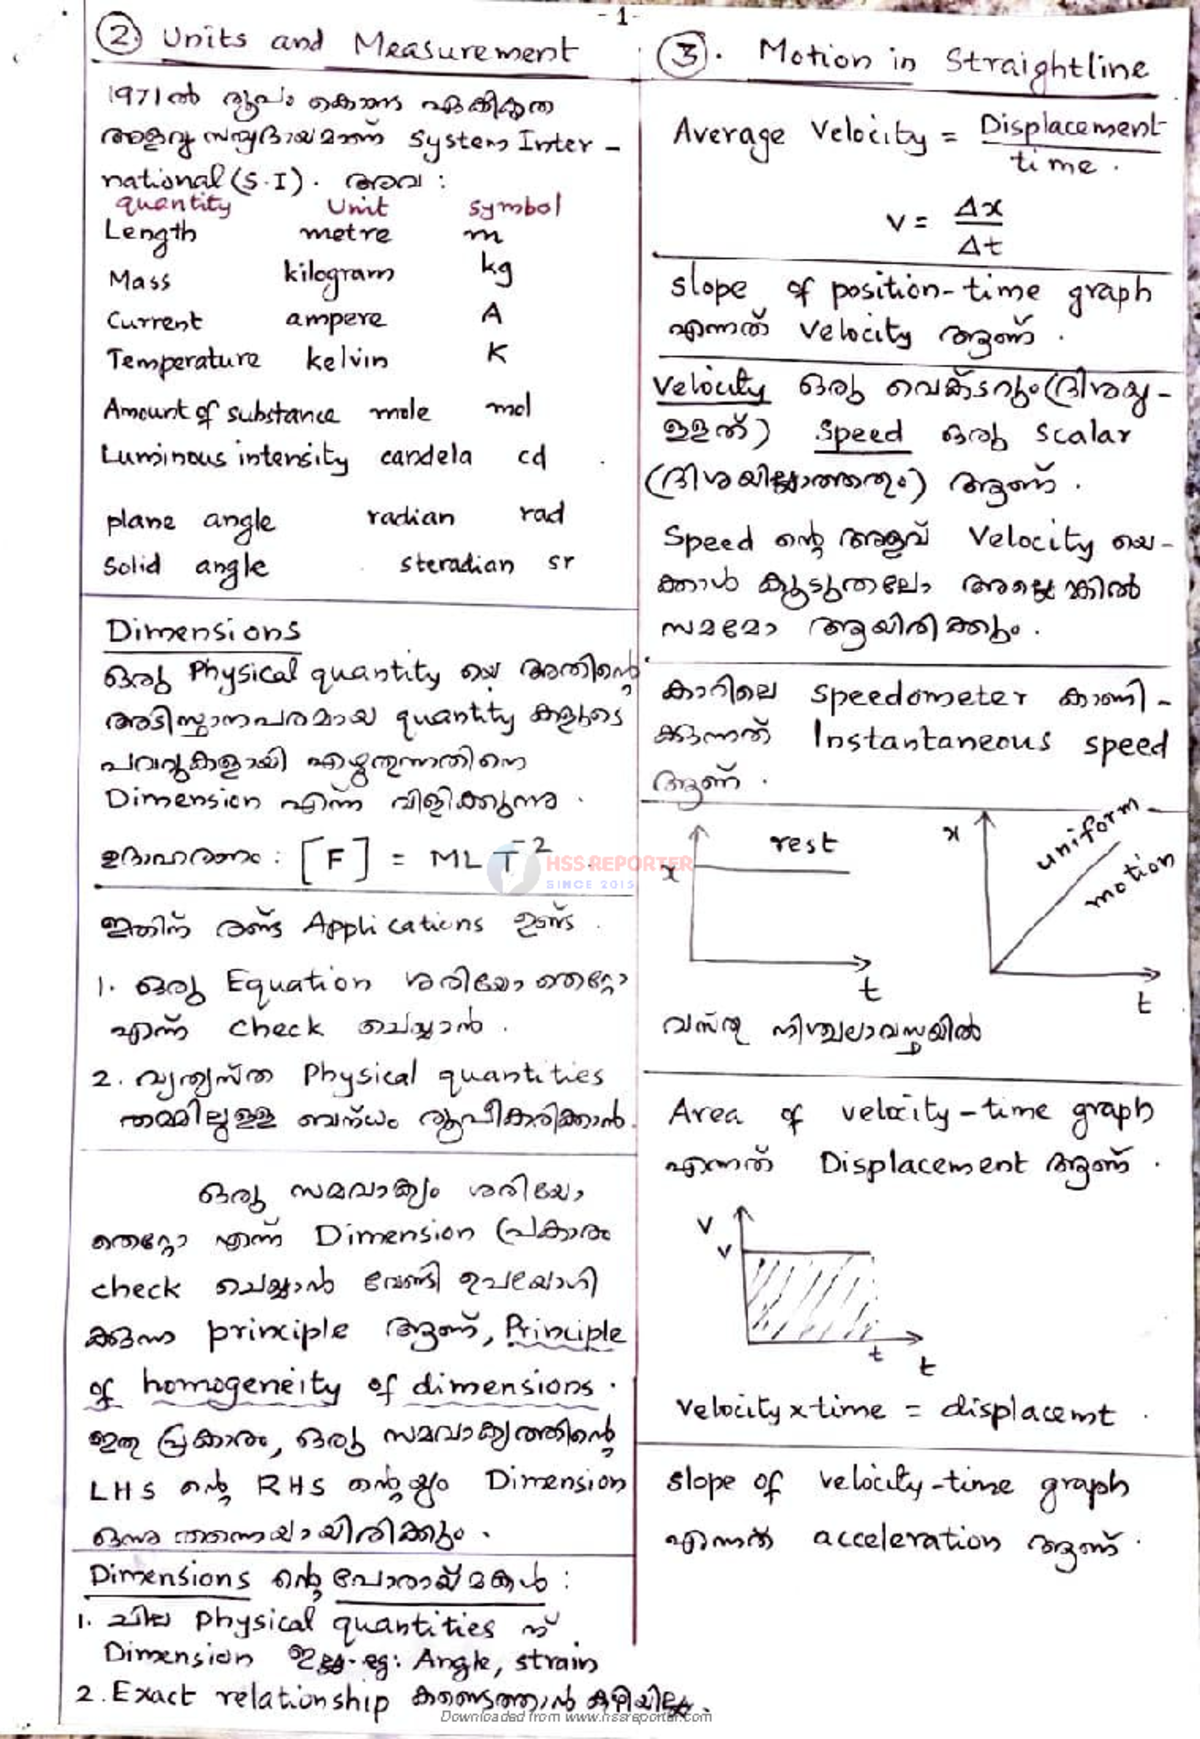 -1-
② Units and Measurement
1971ൽ രൂപം കൊണ്ട ഏകീകൃത
അളവു സമ്പ്രദായമാണ് System Inter-
national (S.I). അവ :
quantity unit symbol
Length metre m
Mass kilogram kg
Current ampere A
Temperature kelvin K
Amount of substance mole mol
Luminous intensity candela cd
plane angle radian rad
Solid angle steradian sr
Dimensions
ഒരു Physical quantity യെ അതിന്റെ
അടിസ്ഥാനപരമായ quantity കളുടെ
പവറുകളായി എഴുതുന്നതിനെ
Dimension എന്ന് വിളിക്കുന്നു.
ഉദാഹരണം : [F] = MLT⁻²
ഇതിന് രണ്ട് Applications ഉണ്ട്.
1. ഒരു Equation ശരിയോ തെറ്റോ
എന്ന് check ചെയ്യാൻ.
2. വ്യത്യസ്ത Physical quantities
തമ്മിലുള്ള ബന്ധം രൂപീകരിക്കാൻ.
ഒരു സമവാക്യം ശരിയോ
തെറ്റോ എന്ന് Dimension പ്രകാരം
check ചെയ്യാൻ വേണ്ടി ഉപയോഗി
ക്കുന്ന principle ആണ്, Principle
of homogeneity of dimensions.
ഇതു പ്രകാരം, ഒരു സമവാക്യത്തിന്റെ
LHS ന്റെ RHS ന്റെയും Dimension
ഒന്നു തന്നെയായിരിക്കും.
Dimensions ന്റെ പോരായ്മകൾ :
1. ചില Physical quantities ന്
Dimension ഇല്ല. eg: Angle, strain
2. Exact relationship കണ്ടെത്താൻ കഴിയില്ല.
③. Motion in Straightline
Average Velocity = Displacement
time.
v = Δx
Δt
slope of position-time graph
എന്നത് Velocity ആണ്.
Velocity ഒരു വെക്ടറും (ദിശയു-
ള്ളത്) Speed ഒരു scalar
(ദിശയില്ലാത്തതും) ആണ്.
Speed ന്റെ അളവ് Velocity യെ-
ക്കാൾ കൂടുതലോ അല്ലെങ്കിൽ
സമമോ ആയിരിക്കും.
കാറിലെ speedometer കാണി-
ക്കുന്നത് Instantaneous speed
ആണ്.
x rest t
x uniform motion t
വസ്തു നിശ്ചലാവസ്ഥയിൽ
Area of velocity-time graph
എന്നത് Displacement ആണ്.
v
v
t t
Velocity x time = displacemt.
slope of velocity-time graph
എന്നത് acceleration ആണ്.
HSS REPORTER
SINCE 2015
Downloaded from www.hssreporter.com